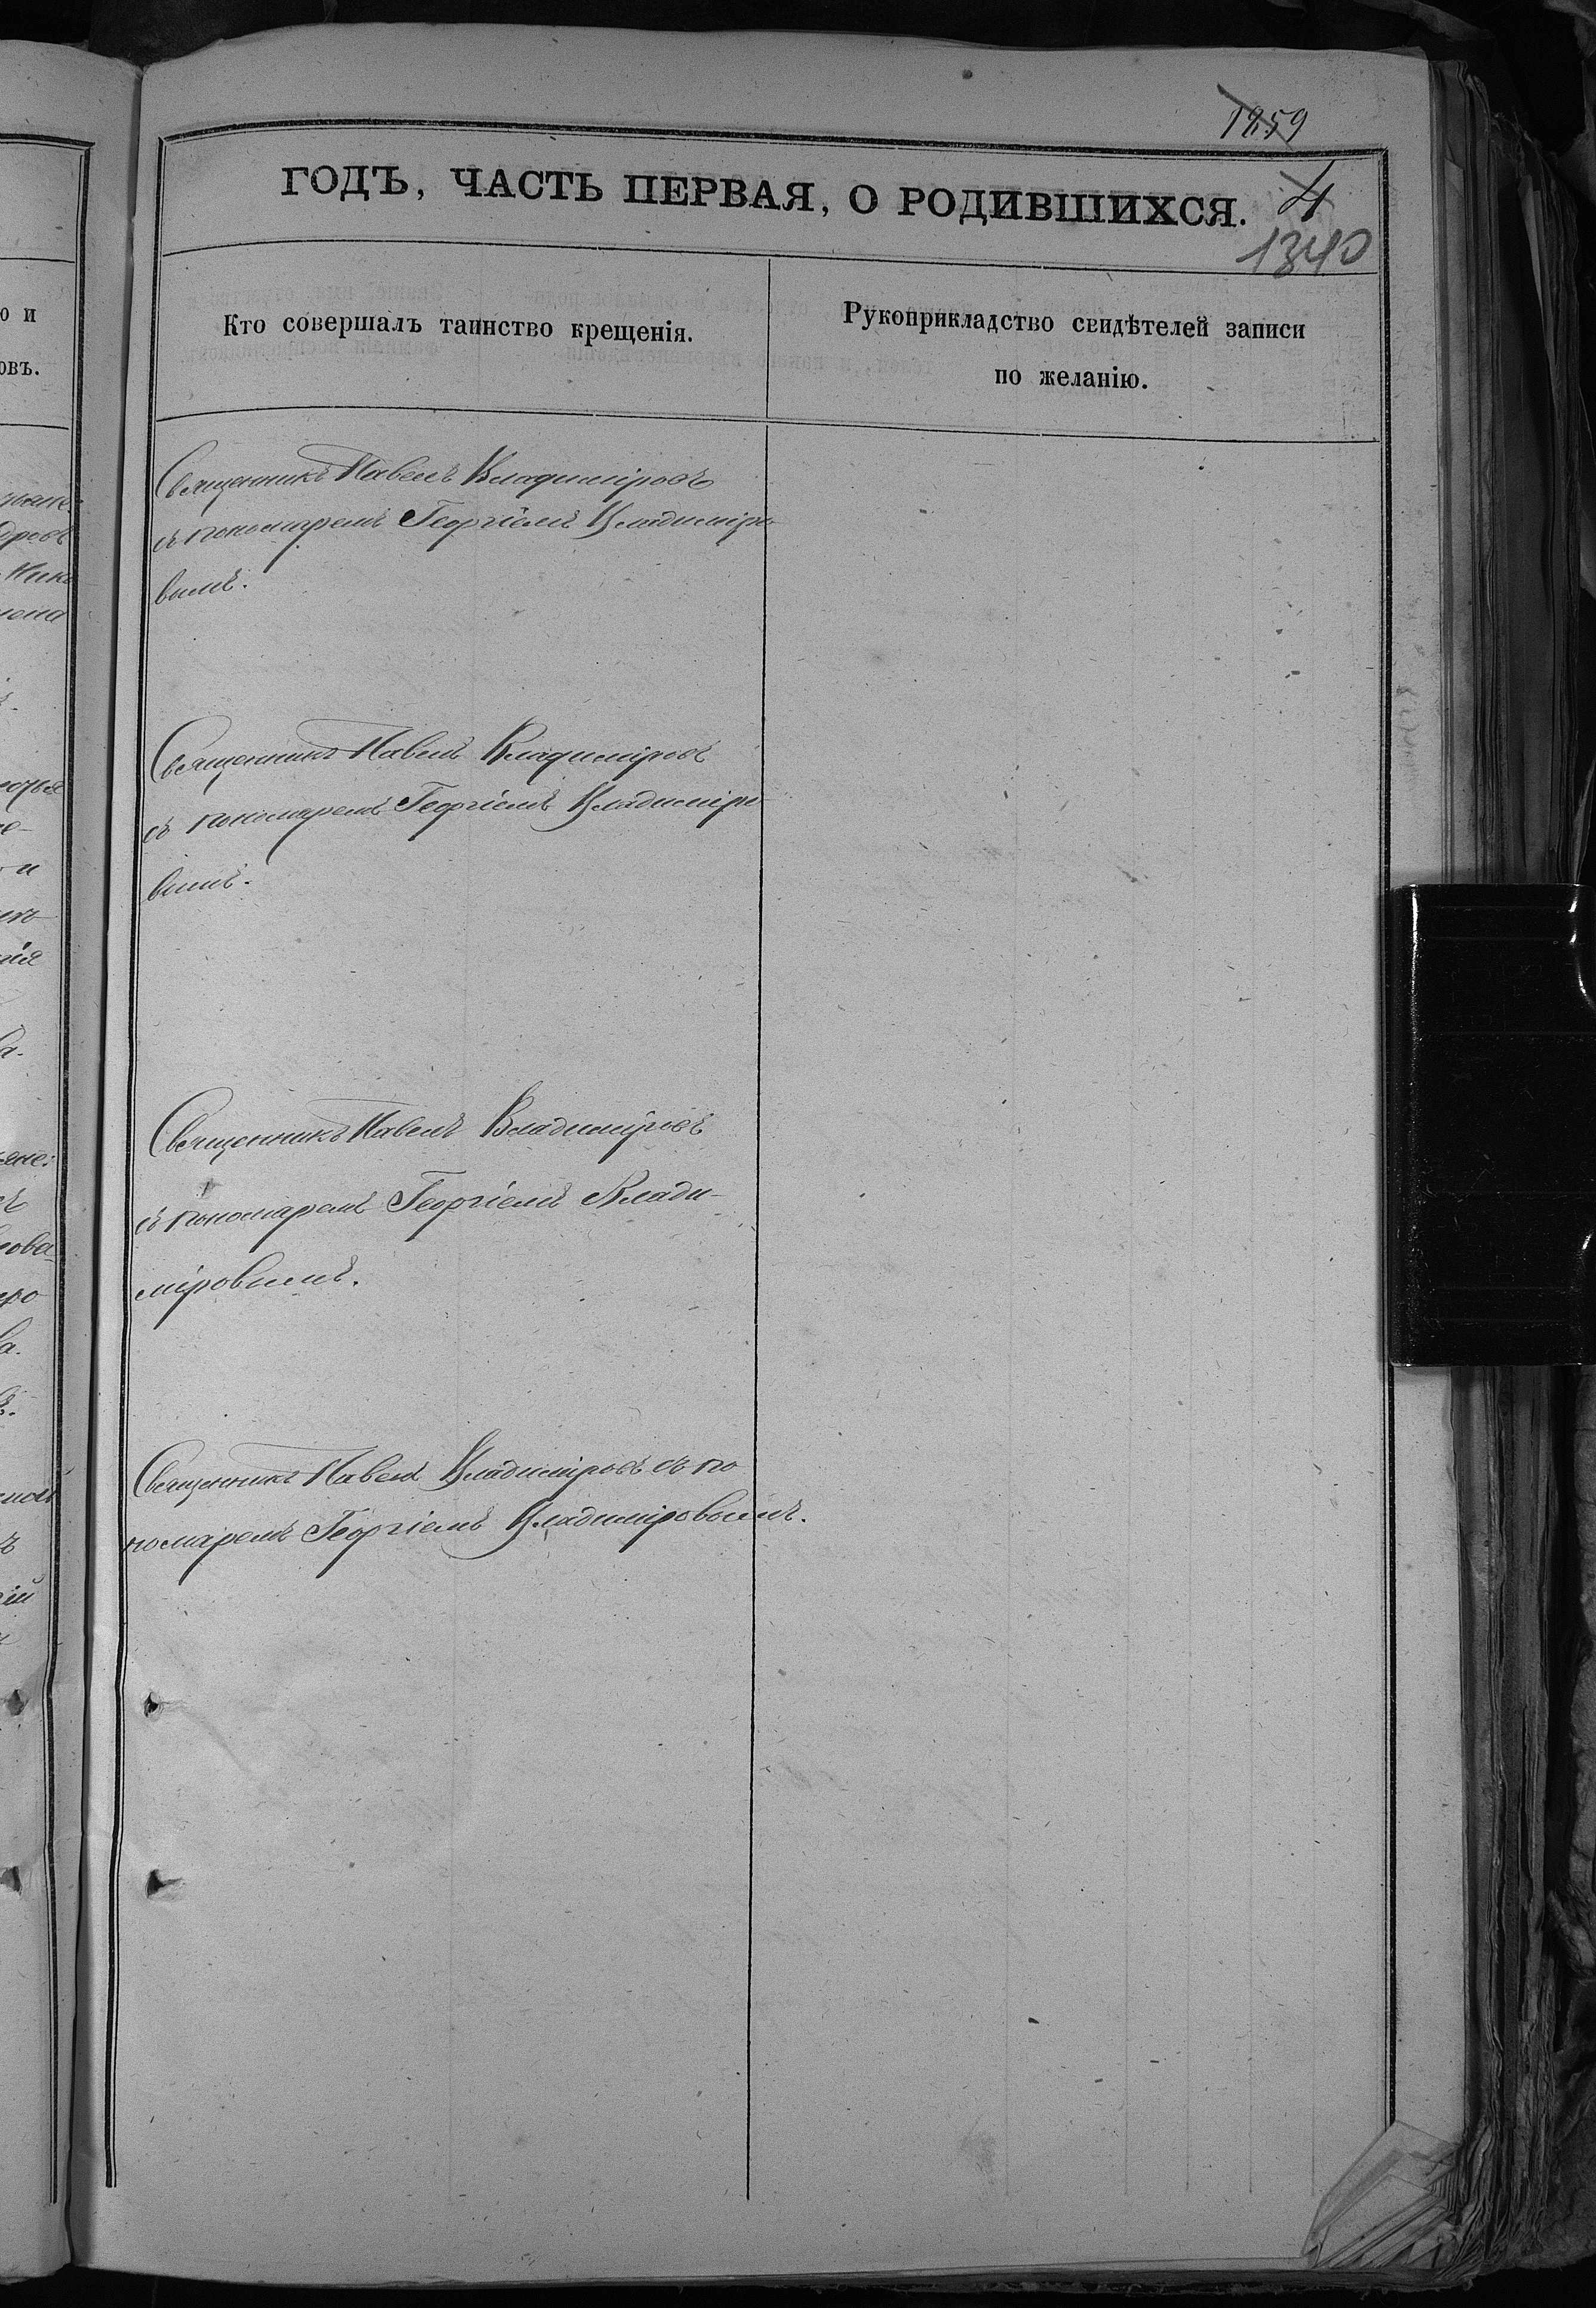 1859
ГОДЪ, ЧАСТЬ ПЕРВАЯ, О РОДИВШИХСЯ. 4
1340
Кто совершалъ таинство крещенія.
Рукоприкладство свидѣтелей записи
по желанію.
Священникъ Павелъ Владиміровъ
съ пономаремъ Георгіемъ Владиміро-
вымъ.
Священникъ Павелъ Владиміровъ
съ пономаремъ Георгіемъ Владиміро-
вымъ.
Священникъ Павелъ Владиміровъ
съ пономаремъ Георгіемъ Влади-
міровымъ.
Священникъ Павелъ Владиміровъ съ по
номаремъ Георгіемъ Владиміровымъ.